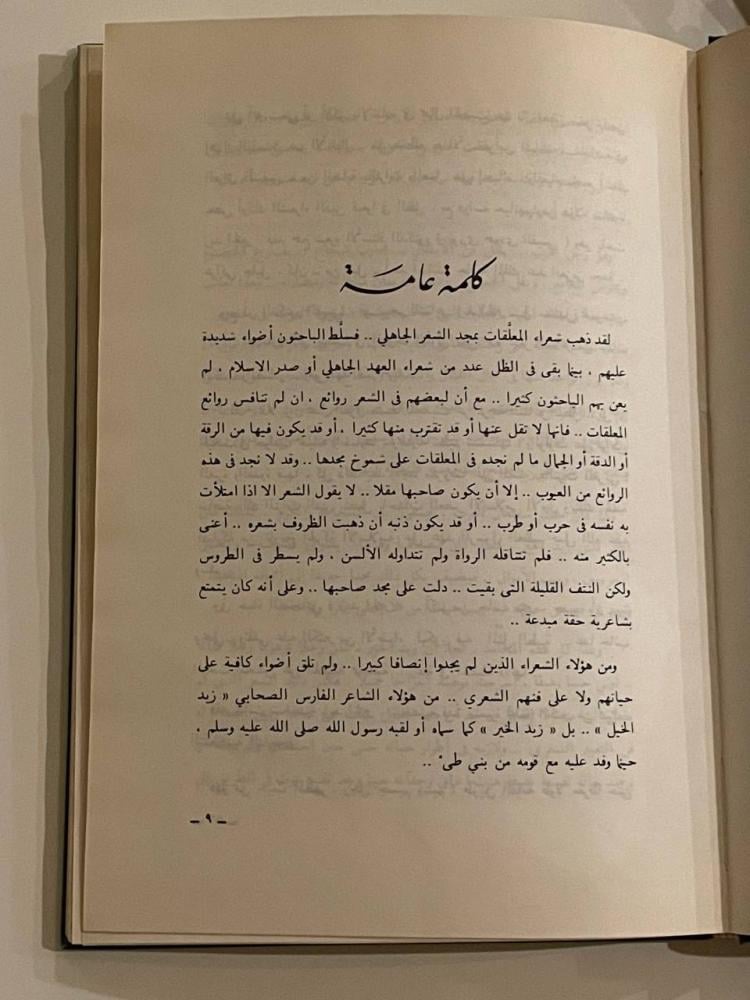 كلمة عامة
لقد ذهب شعراء المعلَّقات بمجد الشعر الجاهلي .. فسلَّط الباحثون أضواء شديدة
عليهم ، بينما بقى فى الظل عدد من شعراء العهد الجاهلي أو صدر الاسلام ، لم
يعن بهم الباحثون كثيرا .. مع أن لبعضهم فى الشعر روائع ، ان لم تنافس روائع
المعلقات .. فانها لا تقل عنها أو قد تقترب منها كثيرا ، أو قد يكون فيها من الرقة
أو الدقة أو الجمال ما لم نجده فى المعلقات على شموخ مجدها .. وقد لا نجد فى هذه
الروائع من العيوب .. إلا أن يكون صاحبها مقلا .. لا يقول الشعر الا اذا امتلأت
به نفسه فى حرب أو طرب .. أو قد يكون ذنبه أن ذهبت الظروف بشعره .. أعنى
بالكثير منه .. فلم تتناقله الرواة ولم تتداوله الألسن ، ولم يسطر فى الطروس
ولكن النتف القليلة التى بقيت .. دلت على مجد صاحبها .. وعلى أنه كان يتمتع
بشاعرية حقة مبدعة ..
ومن هؤلاء الشعراء الذين لم يجدوا إنصافا كبيرا .. ولم تلق أضواء كافية على
حياتهم ولا على فنهم الشعري .. من هؤلاء الشاعر الفارس الصحابي « زيد
الخيل » .. بل « زيد الخير » كما سماه أو لقبه رسول الله صلى الله عليه وسلم ،
حينما وفد عليه مع قومه من بني طىء ..
ــ ٩ ــ